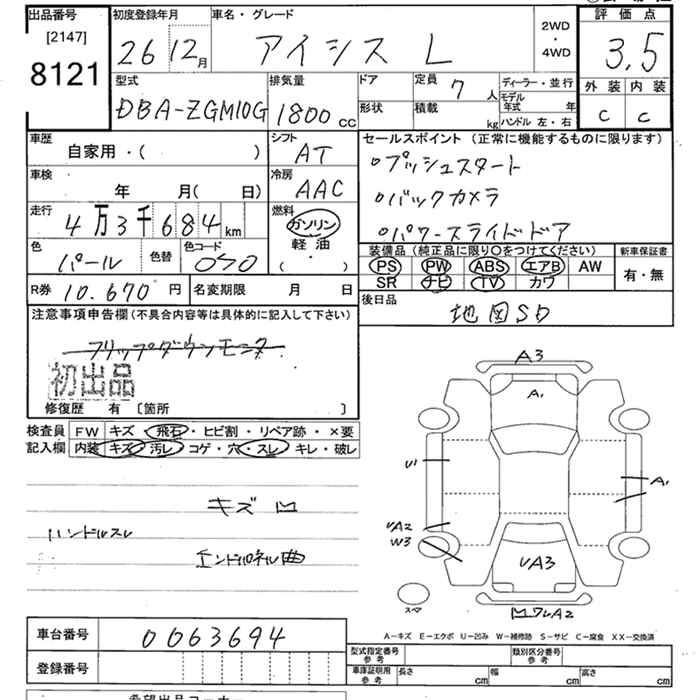 出品番号
[2147]
8121
初度登録年月
26 12月
車名・グレード
アイシス L
2WD
・
4WD
評価点
3.5
型式
DBA-ZGM10G
排気量
1800 CC
ドア
形状
定員 7 人
積載 kg
ディーラー・並行
モデル年式 年
ハンドル 左・右
外装 内装
C C
車歴
自家用・( )
シフト
AT
車検
年 月( 日)
冷房
AAC
走行
4万3千684km
燃料
ガソリン
軽油
( ・ )
色
パール
色替
色コード
070
R券 10.670 円
名変期限 月 日
セールスポイント (正常に機能するものに限ります)
○プッシュスタート
○バックカメラ
○パワースライドドア
装備品(純正品に限り○をつけてください)
新車保証書
PS PW ABS エアB AW
SR ナビ TV カワ
有・無
後日品
地図SD
注意事項申告欄(不具合内容等は具体的に記入して下さい)
フリップダウンモニター
初出品
修復歴 有 〔箇所 〕
検査員
記入欄
FW キズ・飛石・ヒビ割・リペア跡・×要
内装 キズ・汚レ・コゲ・穴・スレ・キレ・破レ
キズ 凹
ハンドルスレ
エンドパネル曲
A3
A1
U1
A1
UA2
W3
UA3
スペア
凹ワレA2
A－キズ E－エクボ U－凹み W－補修跡 S－サビ C－腐食 XX－交換済
車台番号 0063694
登録番号
型式指定番号
参考
類別区分番号
参考
車庫証明用
参考
長さ cm
幅 cm
高さ cm